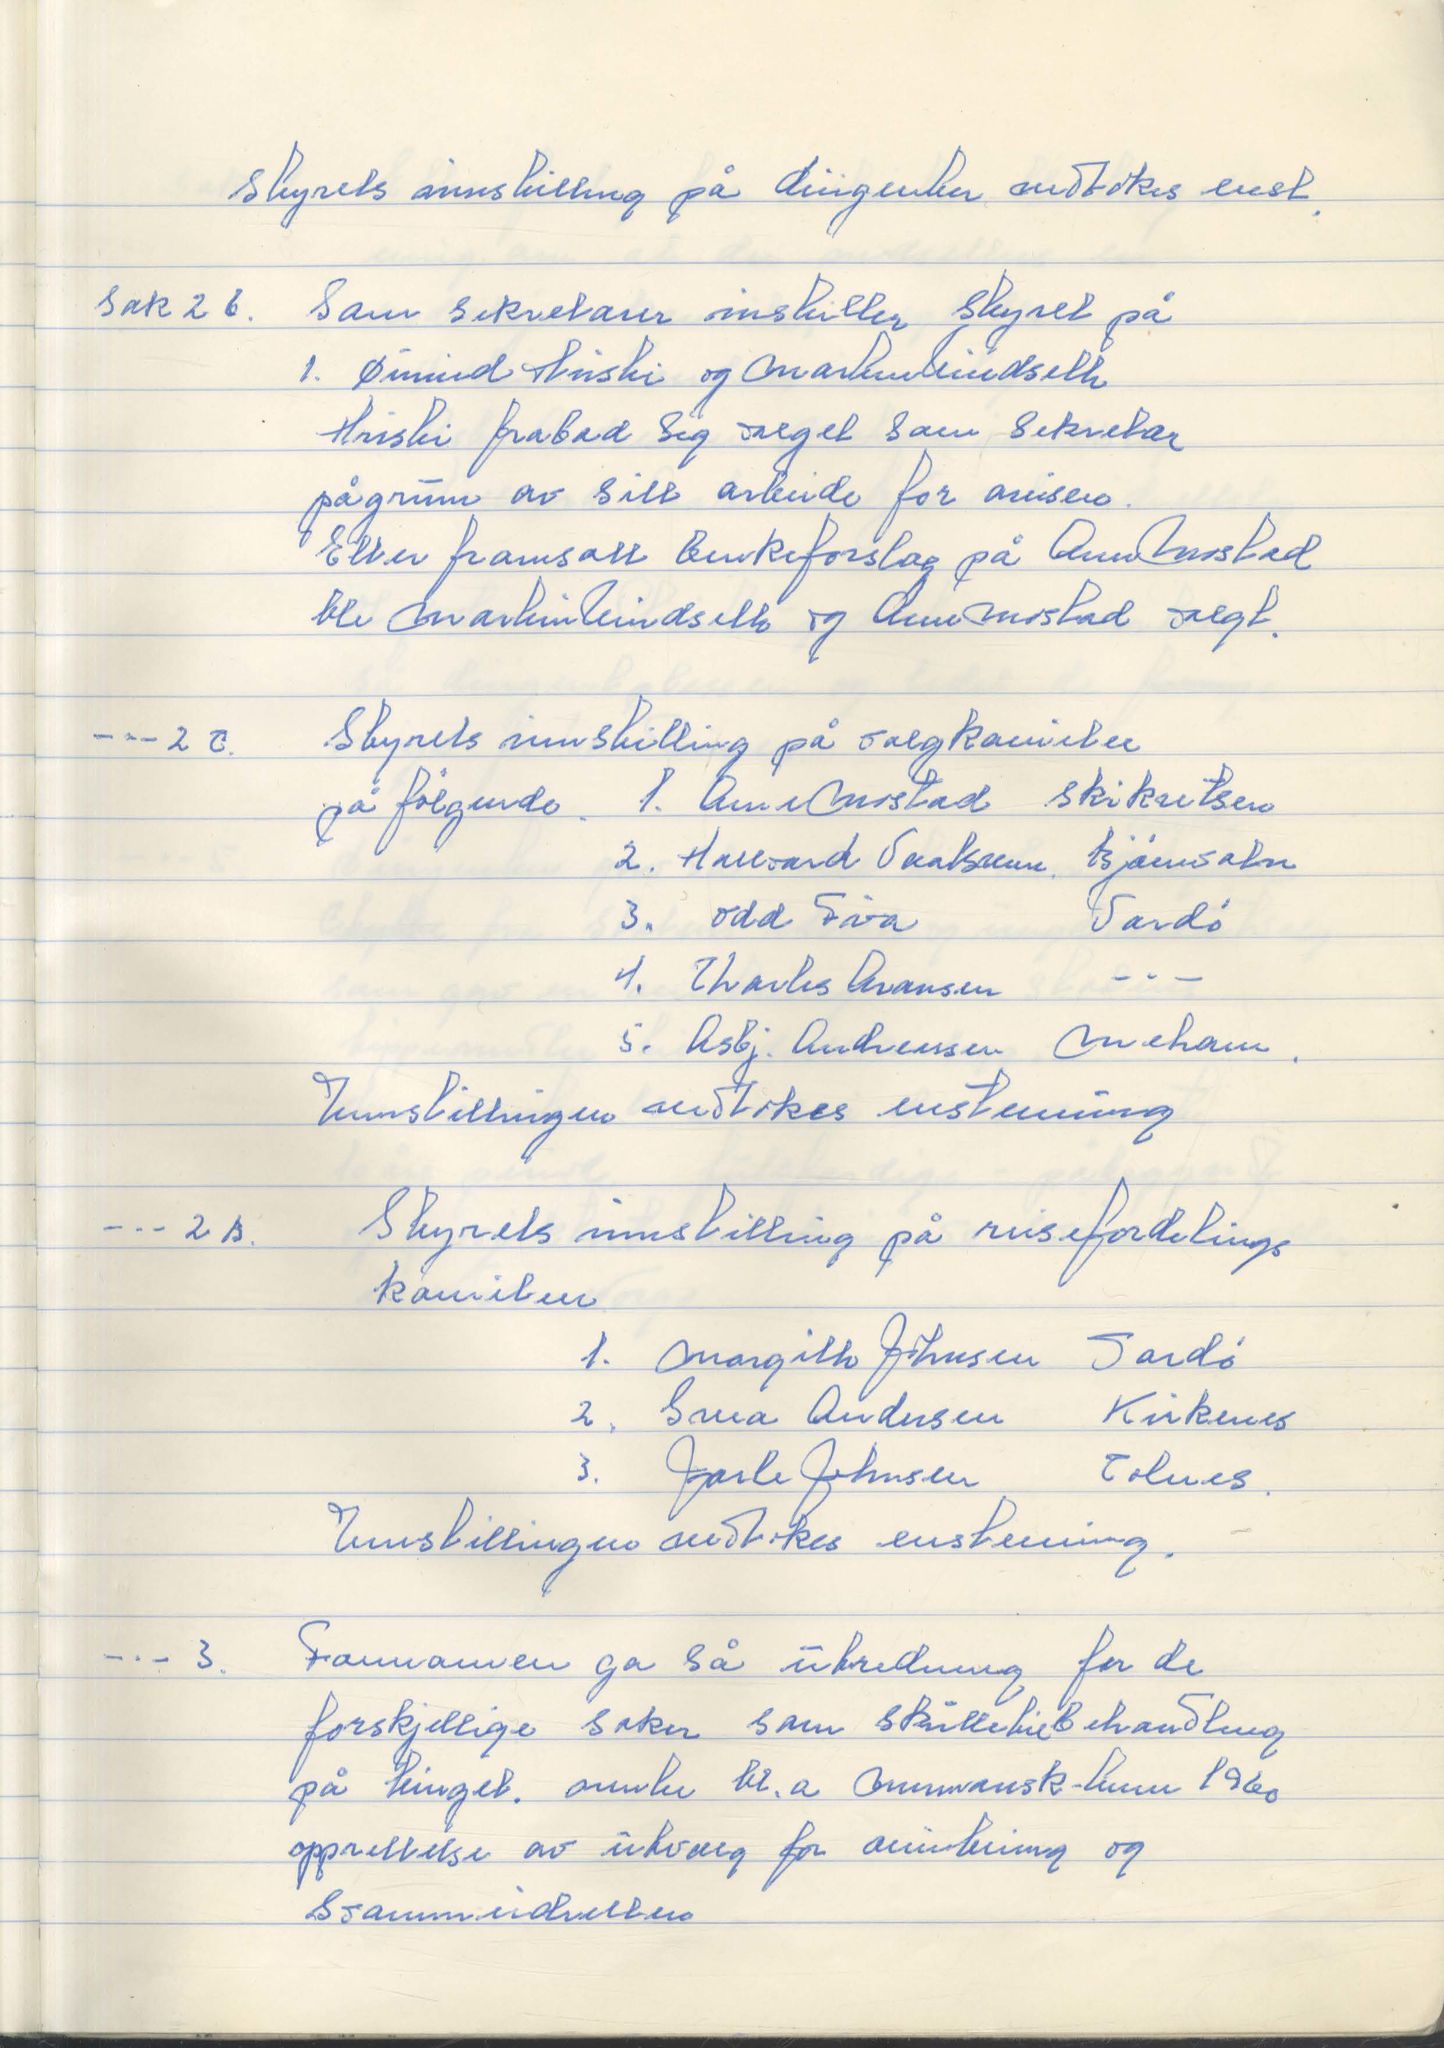 Styrets innstilling på dirigenter vedtokes enst.
Sak 2 b. Som sekretærer instiller styret på
1. Øivind Hriski og Martin Lindseth
Hriski frabad seg valget som sekretær
på grunn av sitt arbeide for avisen.
Etter framsatt benkeforslag på Arne Mostad
ble Martin Lindseth og Arne Mostad valgt.
--- 2 c. Styrets innstilling på valgkomiteen
på følgende. 1. Arne Mostad skikretsen
2. Hallvard Bjørnvatn
3. Odd Vardø
4. Charles Aronsen ---
5. Asbj. Andreassen Mehamn.
Innstillingen vedtokes enstemmig
--- 2 D. Styrets innstilling på reisefordelings
komiteen
1. Margith Johnsen Vardø
2. Svea Andersen Kirkenes
3. Jarle Johnsen Tolnes.
Innstillingen vedtokes enstemmig.
--- 3. Formannen ga så utredning for de
forskjellige saker som skulle til behandling
på tinget. bl. a Murmansk-turn 1960
opprettelse av utvalg for og
Svømmeidretten